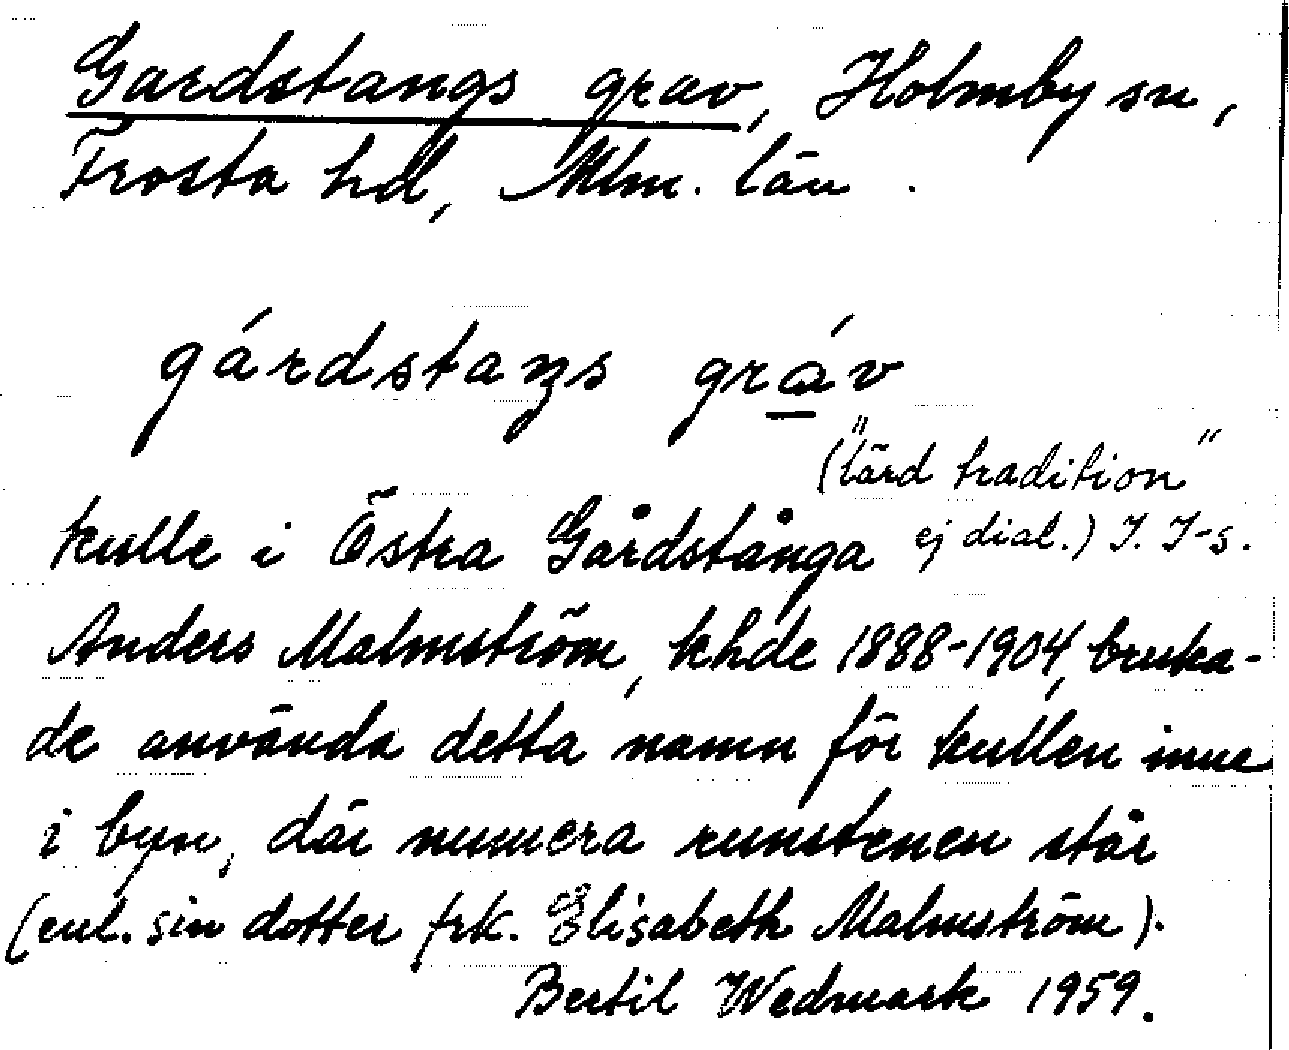 Gardstangs grav, Holmby sn,
Frosta hd, Mlm. län.
gárdstaŋs gráv
("lärd tradition"
ej dial.) I. I-s.
kulle i Östra Gårdstånga
Anders Malmström, khde 1888-1904, bruka-
de använda detta namn för kullen inne
i byn, där numera runstenen står
(enl. sin dotter frk. Elisabeth Malmström).
Bertil Wedmark 1959.